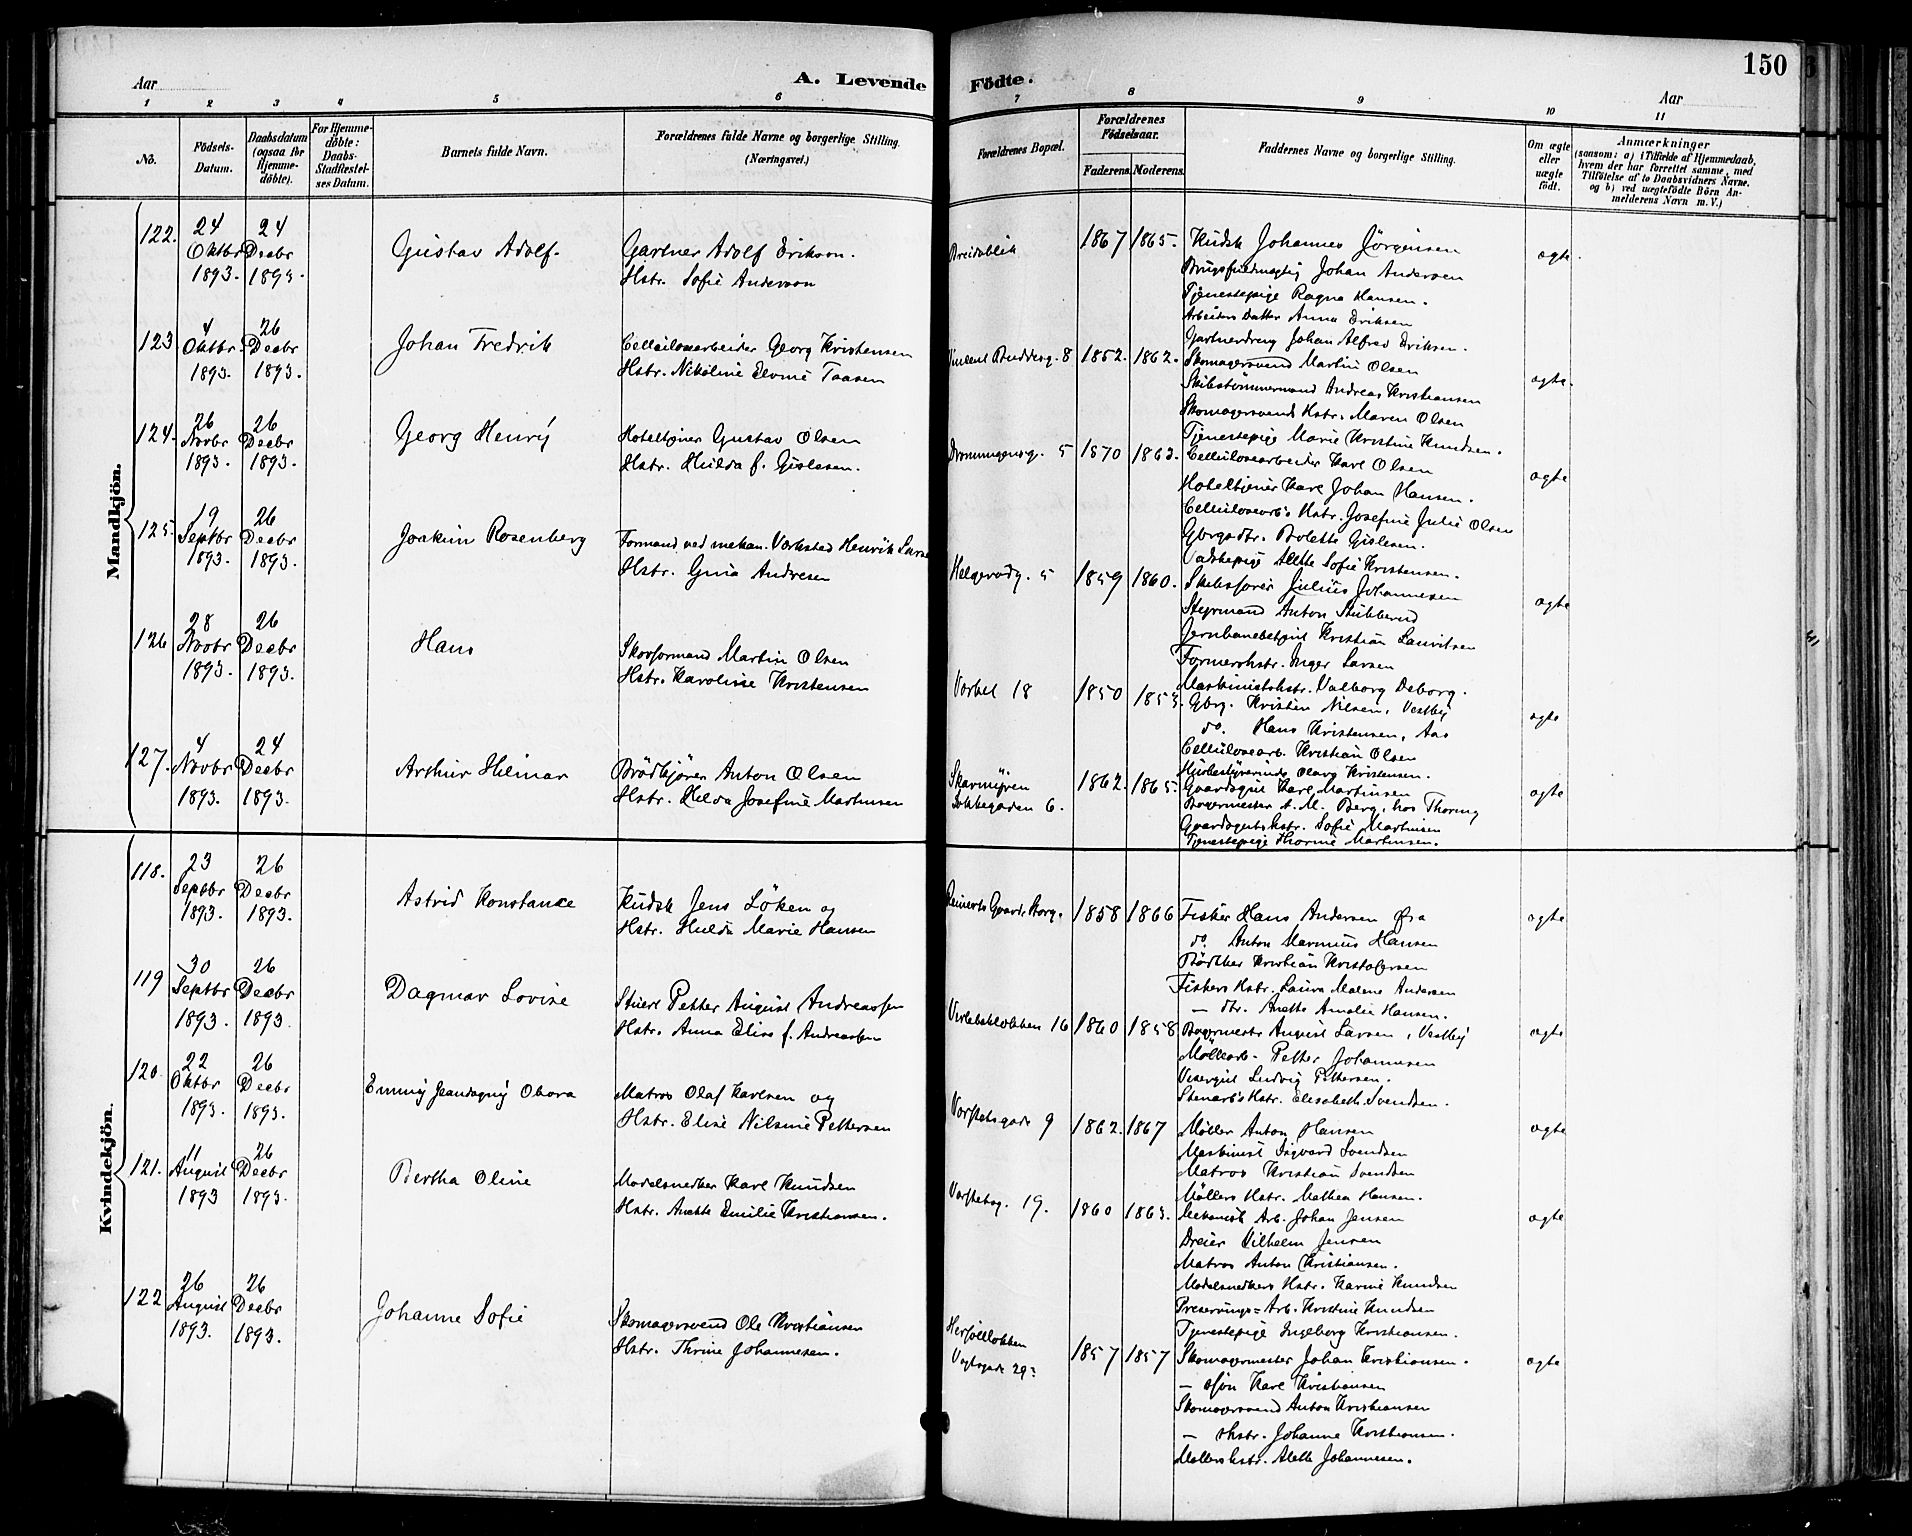 150
Aar
A. Levende
Födte.
Aar
1 2 3 4 5 6 7 8 9 10 11
No.
Födsels-Datum.
Daabsdatum (ogsaa for Hjemme-döbte).
For Hjemme-döbte: Daabs-Stadfæstel-ses Datum.
Barnets fulde Navn.
Forældrenes fulde Navne og borgerlige Stilling. (Næringsvei.)
Forældrenes Bopæl.
Forældrenes Födselsaar.
Faderens. Moderens.
Faddernes Navne og borgerlige Stilling.
Om ægte eller uægte födt.
Anmærkninger
(saasom: a) i Tilfælde af Hjemmedaab,
hvem der har forrettet samme, med
Tilföielse af to Daabsvidners Navne.
og b) ved uægtefödte Börn An-
melderens Navn m. V.)
Mandkjön.
122. 24 Oktbr 1893. 24 Decbr 1893. Gustav Adolf. Gartner Adolf Erikson. Hstr. Sofie Anderson Breidablik 1867 1865. ægte.
Kudsk Johannes Jörgensen
Brugsfuldmægtig Johan Andersen
Tjenestepige Ragna Hansen.
Arbeiders Datter Anna Eriksen
Gartnerdreng Johan Alfred Eriksen.
123 4 Oktbr. 1893. 26 Decbr 1893. Johan Fredrik Cellulosearbeider Georg Kristensen Hstr. Nikoline Elvine Taasen Vincent Buddesg. 8 1852. 1862. ægte.
Skomagersvend Martin Olsen
Skibstömmermand Andreas Kristiansen
Skomagersvends Hstr. Maren Olsen
Tjenestepige Marie Kristine Knudsen.
124. 26 Novbr 1893. 26 Decbr 1893. Georg Henry Hoteltjener Gustav Olsen Hstr. Hulda f. Gislesen. Dronningensg. 5 1870 1863. ægte
Cellulosearbeider Karl Olsen
Hoteltjener Karl Johan Hansen.
Cellulosearb's Hstr. Josefine Julie Olsen
Gbrgsdtr. Bolette Gislesen.
Vadskepige Alette Sofie Kristensen.
125. 19 Septbr 1893. 26 Decbr 1893. Joakim Rosenberg Formand ved mekan. Værksted Henrik Larse Hstr. Gina Andresen Helgerødg. 5 1859 1860. ægte
Skibsförer Julius Johannesen
Styrmand Anton Stubberud
Jernbanebetjent Kristian Lauritsen
Formershstr. Inger Larsen
Maskinistshstr. Valborg Deborg.
126 28 Novbr 1893. 26 Decbr 1893. Hans Skovformand Martin Olsen Hstr. Karoline Kristensen Varbel 18 1850 1853. ægte
Gbrg. Kristen Nilsen, Vestby
do. Hans Kristensen, Aas
Cellulosearb. Kristian Olsen
Olava Kristensen.
127. 4 Novbr 1893. 24 Decbr 1893. Arthur Hilmar Brödkjörer Anton Olsen Hstr. Hilda Josefine Martinsen Skarmyren Sokkegaden 6. 1862. 1865. ægte
Gaardsgut Karl Martinsen
Bagermester A. M. Berg, hos Thorning
Gaardsguts hstr. Sofie Martinsen
Tjenestepige Thorine Martinsen.
Kvindekjön.
118. 23 Septbr 1893. 26 Decbr 1893. Astrid Konstance Kudsk Jens Löken og Hstr. Hulda Marie Hansen Reinerts Gaard Storg. 1858 1866 ægte
Fisker Hans Andersen Öra
do. Anton Marinius Hansen
Bödker Kristian Kristofersen
Fiskers Hstr. Laura Malene Andersen
— dtr. Anette Amalie Hansen.
119 30 Septbr 1893. 26 Decbr 1893. Dagmar Lovise Stuert Petter August Andreassen Hstr. Anna Elise f. Andreassen Verlebaklokken 16 1860 1858 ægte
Bagermestr August Larsen, Vestby
Möllearb. Petter Johannesen
Visergut Ludvig Pettersen.
Stenarb's Hstr. Elisabeth Svendsen.
120. 22 Oktbr 1893. 26 Decbr 1893. Emmy Jeandagny Obora Matros Olaf Karlsen og Hstr. Elise Nilsine Pettersen Varftetsgade 9 1862. 1867 ægte
Möller Anton Hansen
Maskinist Sigvard Svendsen
Matros Kristian Svendsen
Möllers Hstr. Mathea Hansen.
121. 11 August 1893 26 Decbr 1893. Bertha Oline Modelsnedker Karl Knudsen Hstr. Anette Emilie Kristiansen. Varftetsg. 19. 1860 1863. ægte
Mekanisk Arb. Johan Jensen
Dreier Vilhelm Jensen
Matros Anton Kristiansen.
Modelsnedkers Hstr. Karine Knudsen
Preservings=Arb. Kristine Knudsen
Tjenestepige Ingeborg Kristiansen.
122 26 August 1893. 26 Decbr 1893. Johanne Sofie Skomagersvend Ole Kristiansen Hstr. Thrine Johannesen. Herföllökken Vogtsgade 29 1857 1857 ægte
Skomagermester Johan Kristiansen.
— sön Karl Kristiansen
Skomagersvend Anton Kristiansen
— shstr. Johanne Kristiansen.
Möllers hstr. Alette Johannesen.